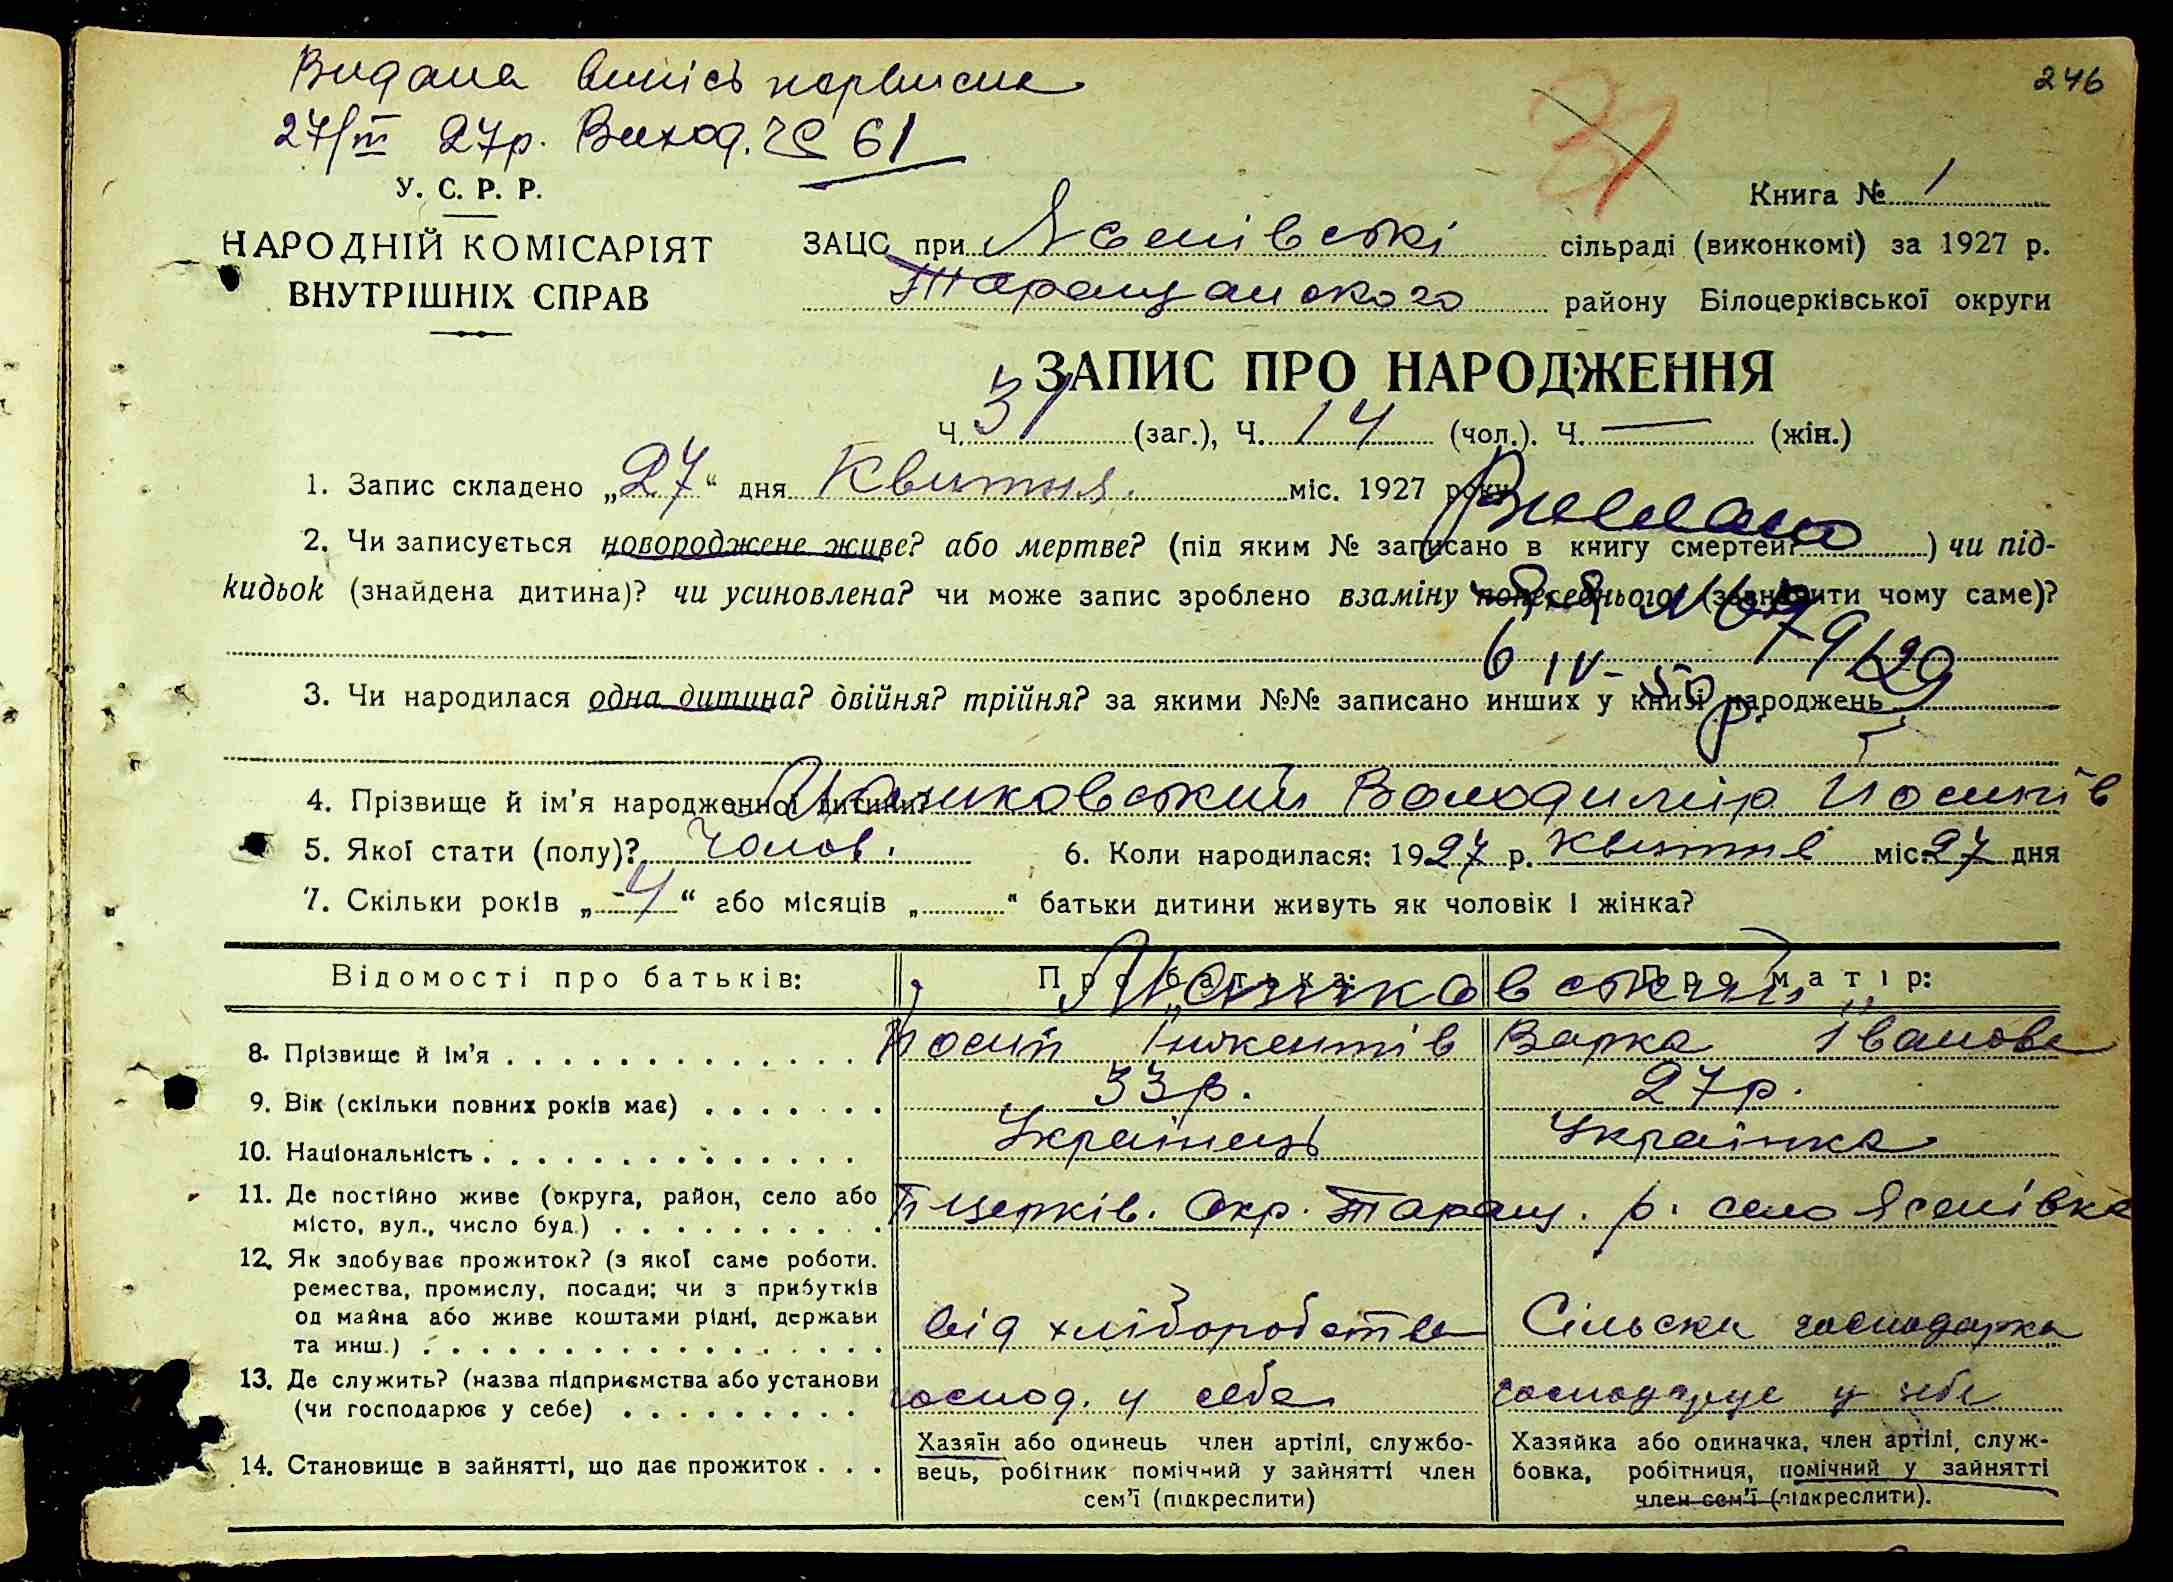 Видана випись первисна
246
27/III 27р. Виход. № 61
31
У. С. Р. Р.
Книга № 1
НАРОДНІЙ КОМІСАРІЯТ
ВНУТРІШНІХ СПРАВ
ЗАЦС при Ясенівські сільраді (виконкомі) за 1927 р.
Таращанского району Білоцерківської округи
ЗАПИС ПРО НАРОДЖЕННЯ
Ч. 31 (заг.), Ч. 14 (чол.). Ч. — (жін.)
1. Запис складено „27“ дня Квитня. міс. 1927 року
2. Чи записується новороджене живе? або мертве? (під яким № записано в книгу смертей? ) чи під-
кидьок (знайдена дитина)? чи усиновлена? чи може запис зроблено взаміну попереднього (зазначити чому саме)?
6 IV - 50 р.
3. Чи народилася одна дитина? двійня? трійня? за якими №№ записано инших у книзі народжень
4. Прізвище й ім'я народженної дитини? Володимір Йосипів
5. Якої стати (полу)? Чолов. 6. Коли народилася: 1927 р. Квитня міс. 27 дня
7. Скільки років „4“ або місяців „ “ батьки дитини живуть як чоловік і жінка?
Відомості про батьків: Про батька: Про матір:
8. Прізвище й ім'я Йосип Інокентів Варка Іванова
9. Вік (скільки повних років має) 33р. 27р.
10. Національність Українець Українка
11. Де постійно живе (округа, район, село або
місто, вул., число буд.) Б церків. Окр. Таращ. р. село Ясенівка
12. Як здобуває прожиток? (з якої саме роботи.
ремества, промислу, посади; чи з прибутків
од майна або живе коштами рідні, держави
та инш.) від хліборобства Сільска господарка
13. Де служить? (назва підприємства або установи
(чи господарює у себе) господ. у себе господарує у себе
14. Становище в зайнятті, що дає прожиток
Хазяїн або одинець член артілі, службо-
вець, робітник помічний у зайнятті член
сем'ї (підкреслити)
Хазяйка або одиначка, член артілі, служ-
бовка, робітниця, помічний у зайнятті
член сем'ї (підкреслити).